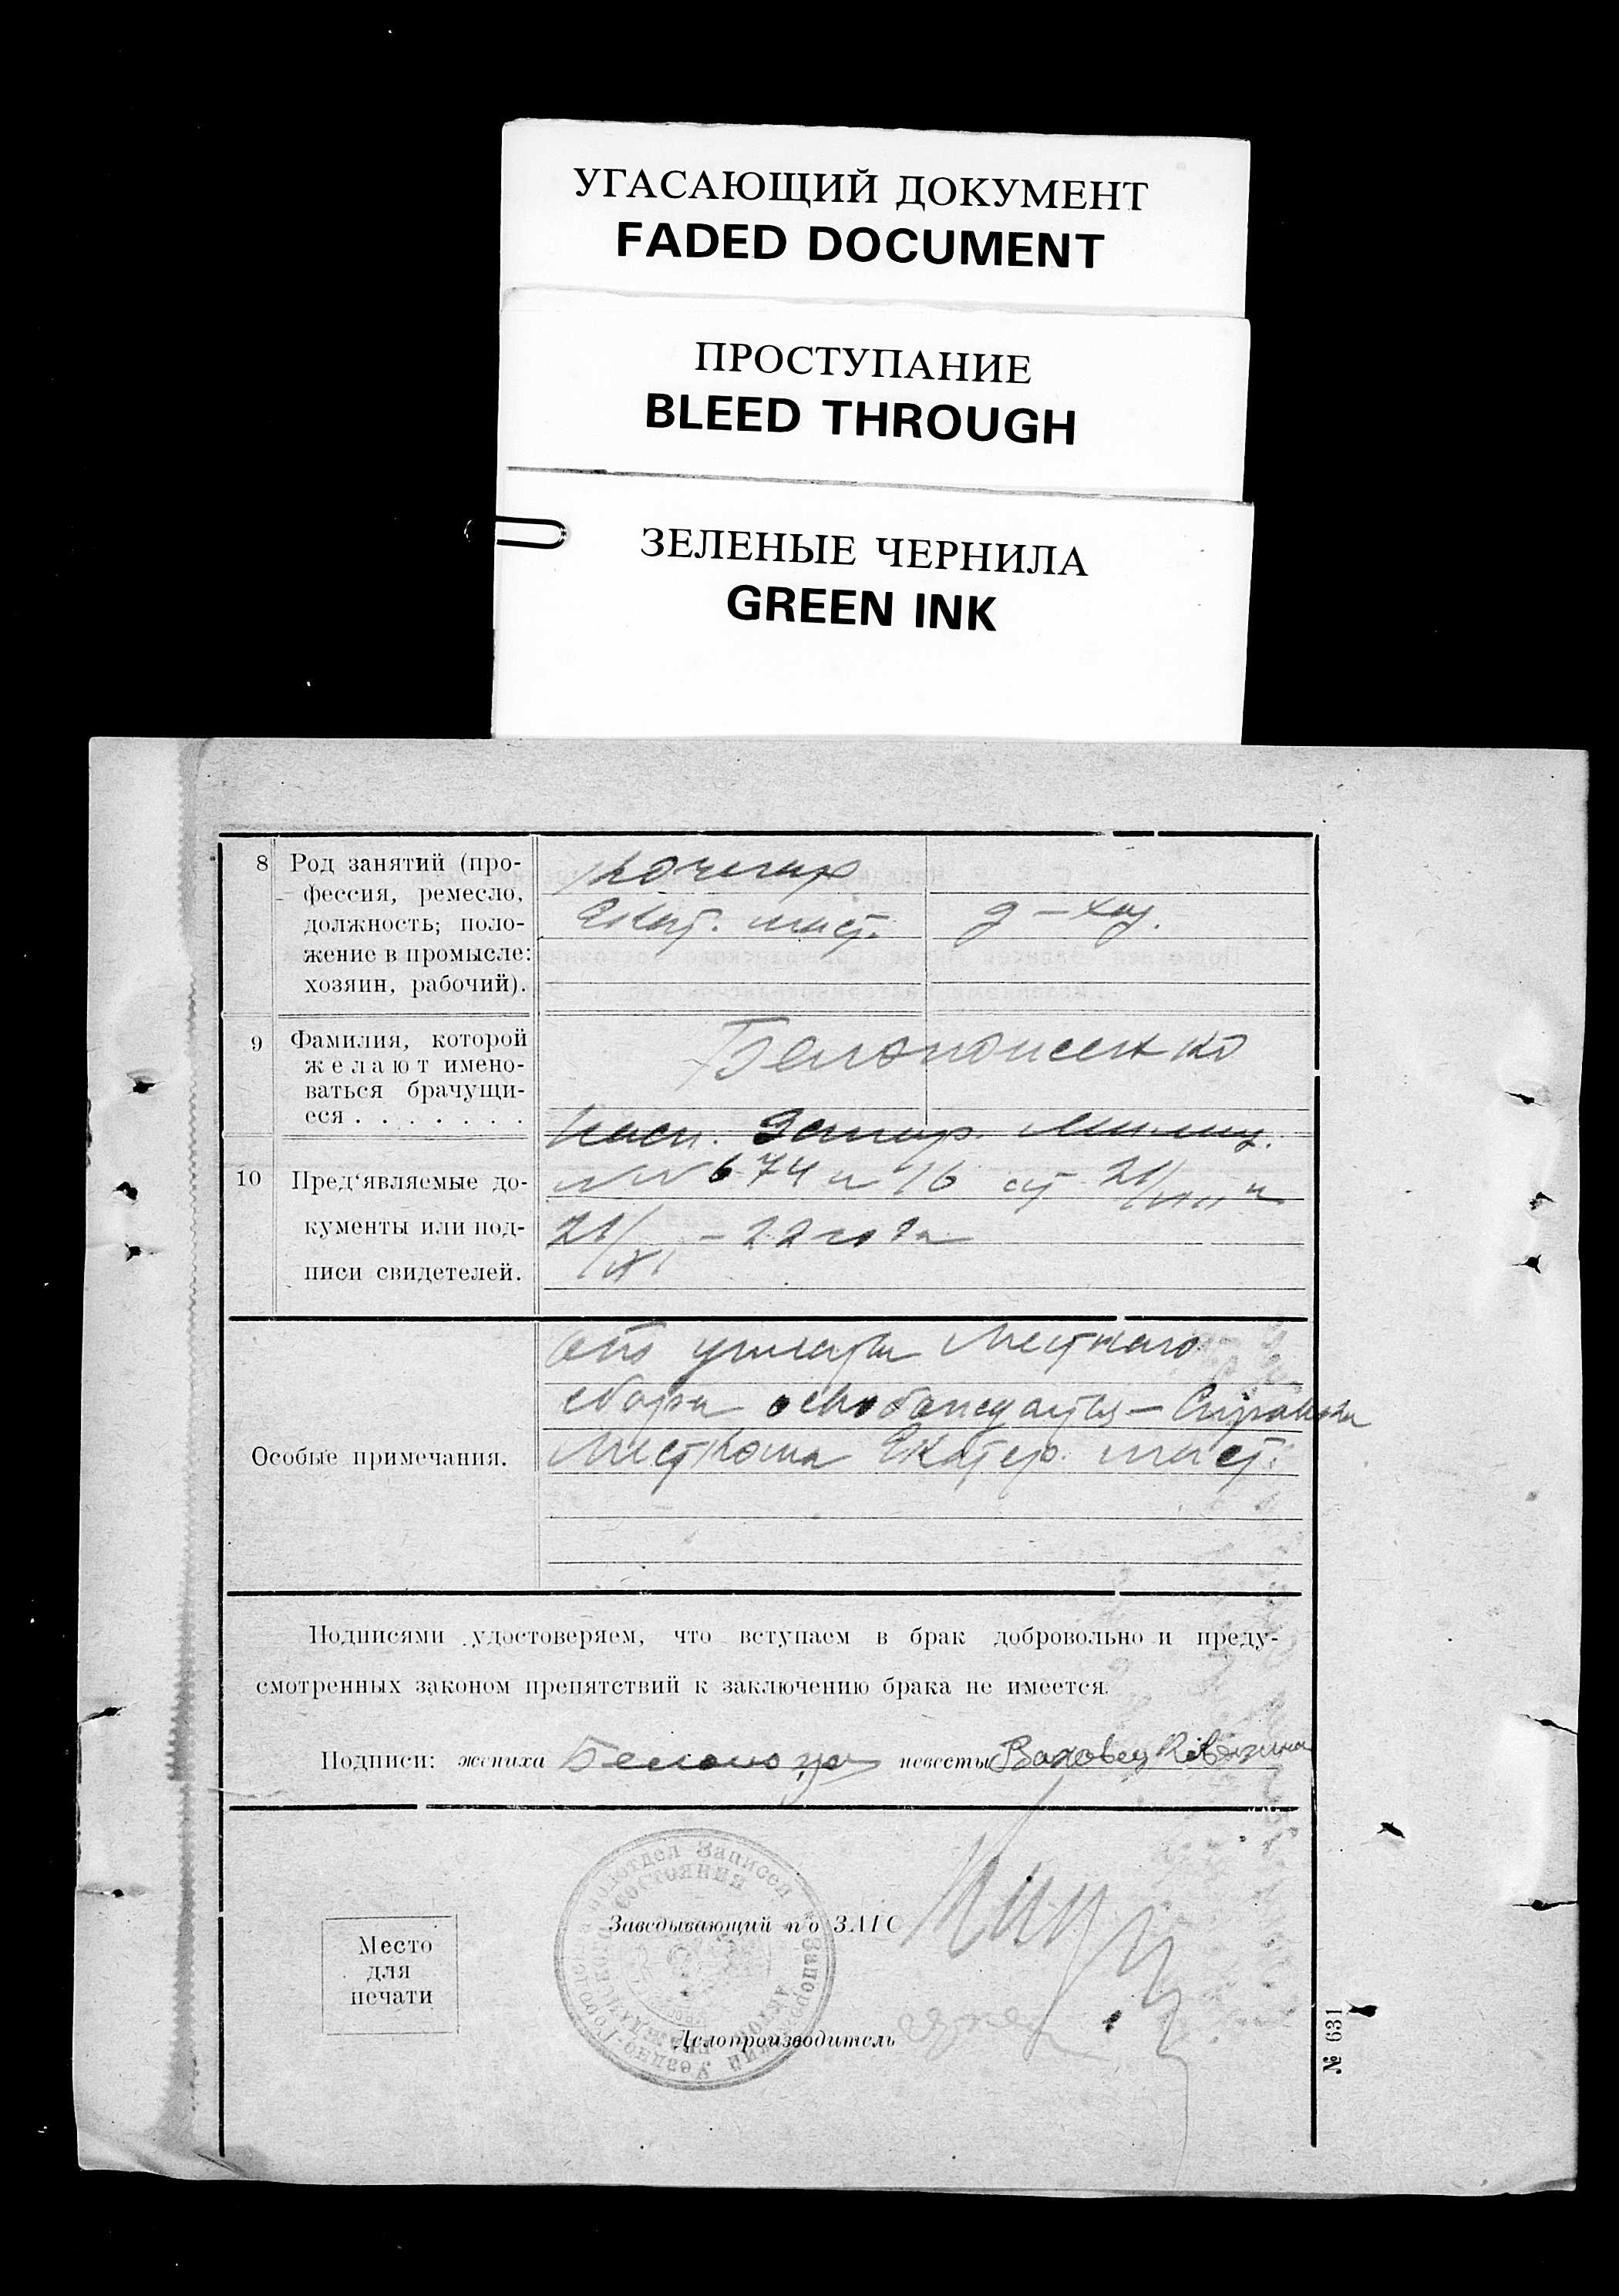 УГАСАЮЩИЙ ДОКУМЕНТ
FADED DOCUMENT
ПРОСТУПАНИЕ
BLEED THROUGH
ЗЕЛЕНЫЕ ЧЕРНИЛА
GREEN INK
8 Род занятий (про-
фессия, ремесло,
должность; поло-
жение в промысле:
хозяин, рабочий).
Кочегар
Екат. маст.
д-хоз.
9 Фамилия, которой
желают имено-
ваться брачущи-
еся . . . . . . .
10 Пред‘являемые до-
кументы или под-
писи свидетелей.
Запор. Милиц.
№№ 674 и 16 от 21/VIII и
21/XI - 22 года
Особые примечания.
От уплаты Местного
сбора освобождаются - Справка
Месткома Екатер. маст.
Подписями удостоверяем, что вступаем в брак добровольно и преду-
смотренных законом препятствий к заключению брака не имеется.
Подписи: жениха невесты
Место
для
печати
Заведывающий по ЗАГС
Делопроизводитель
№ 631